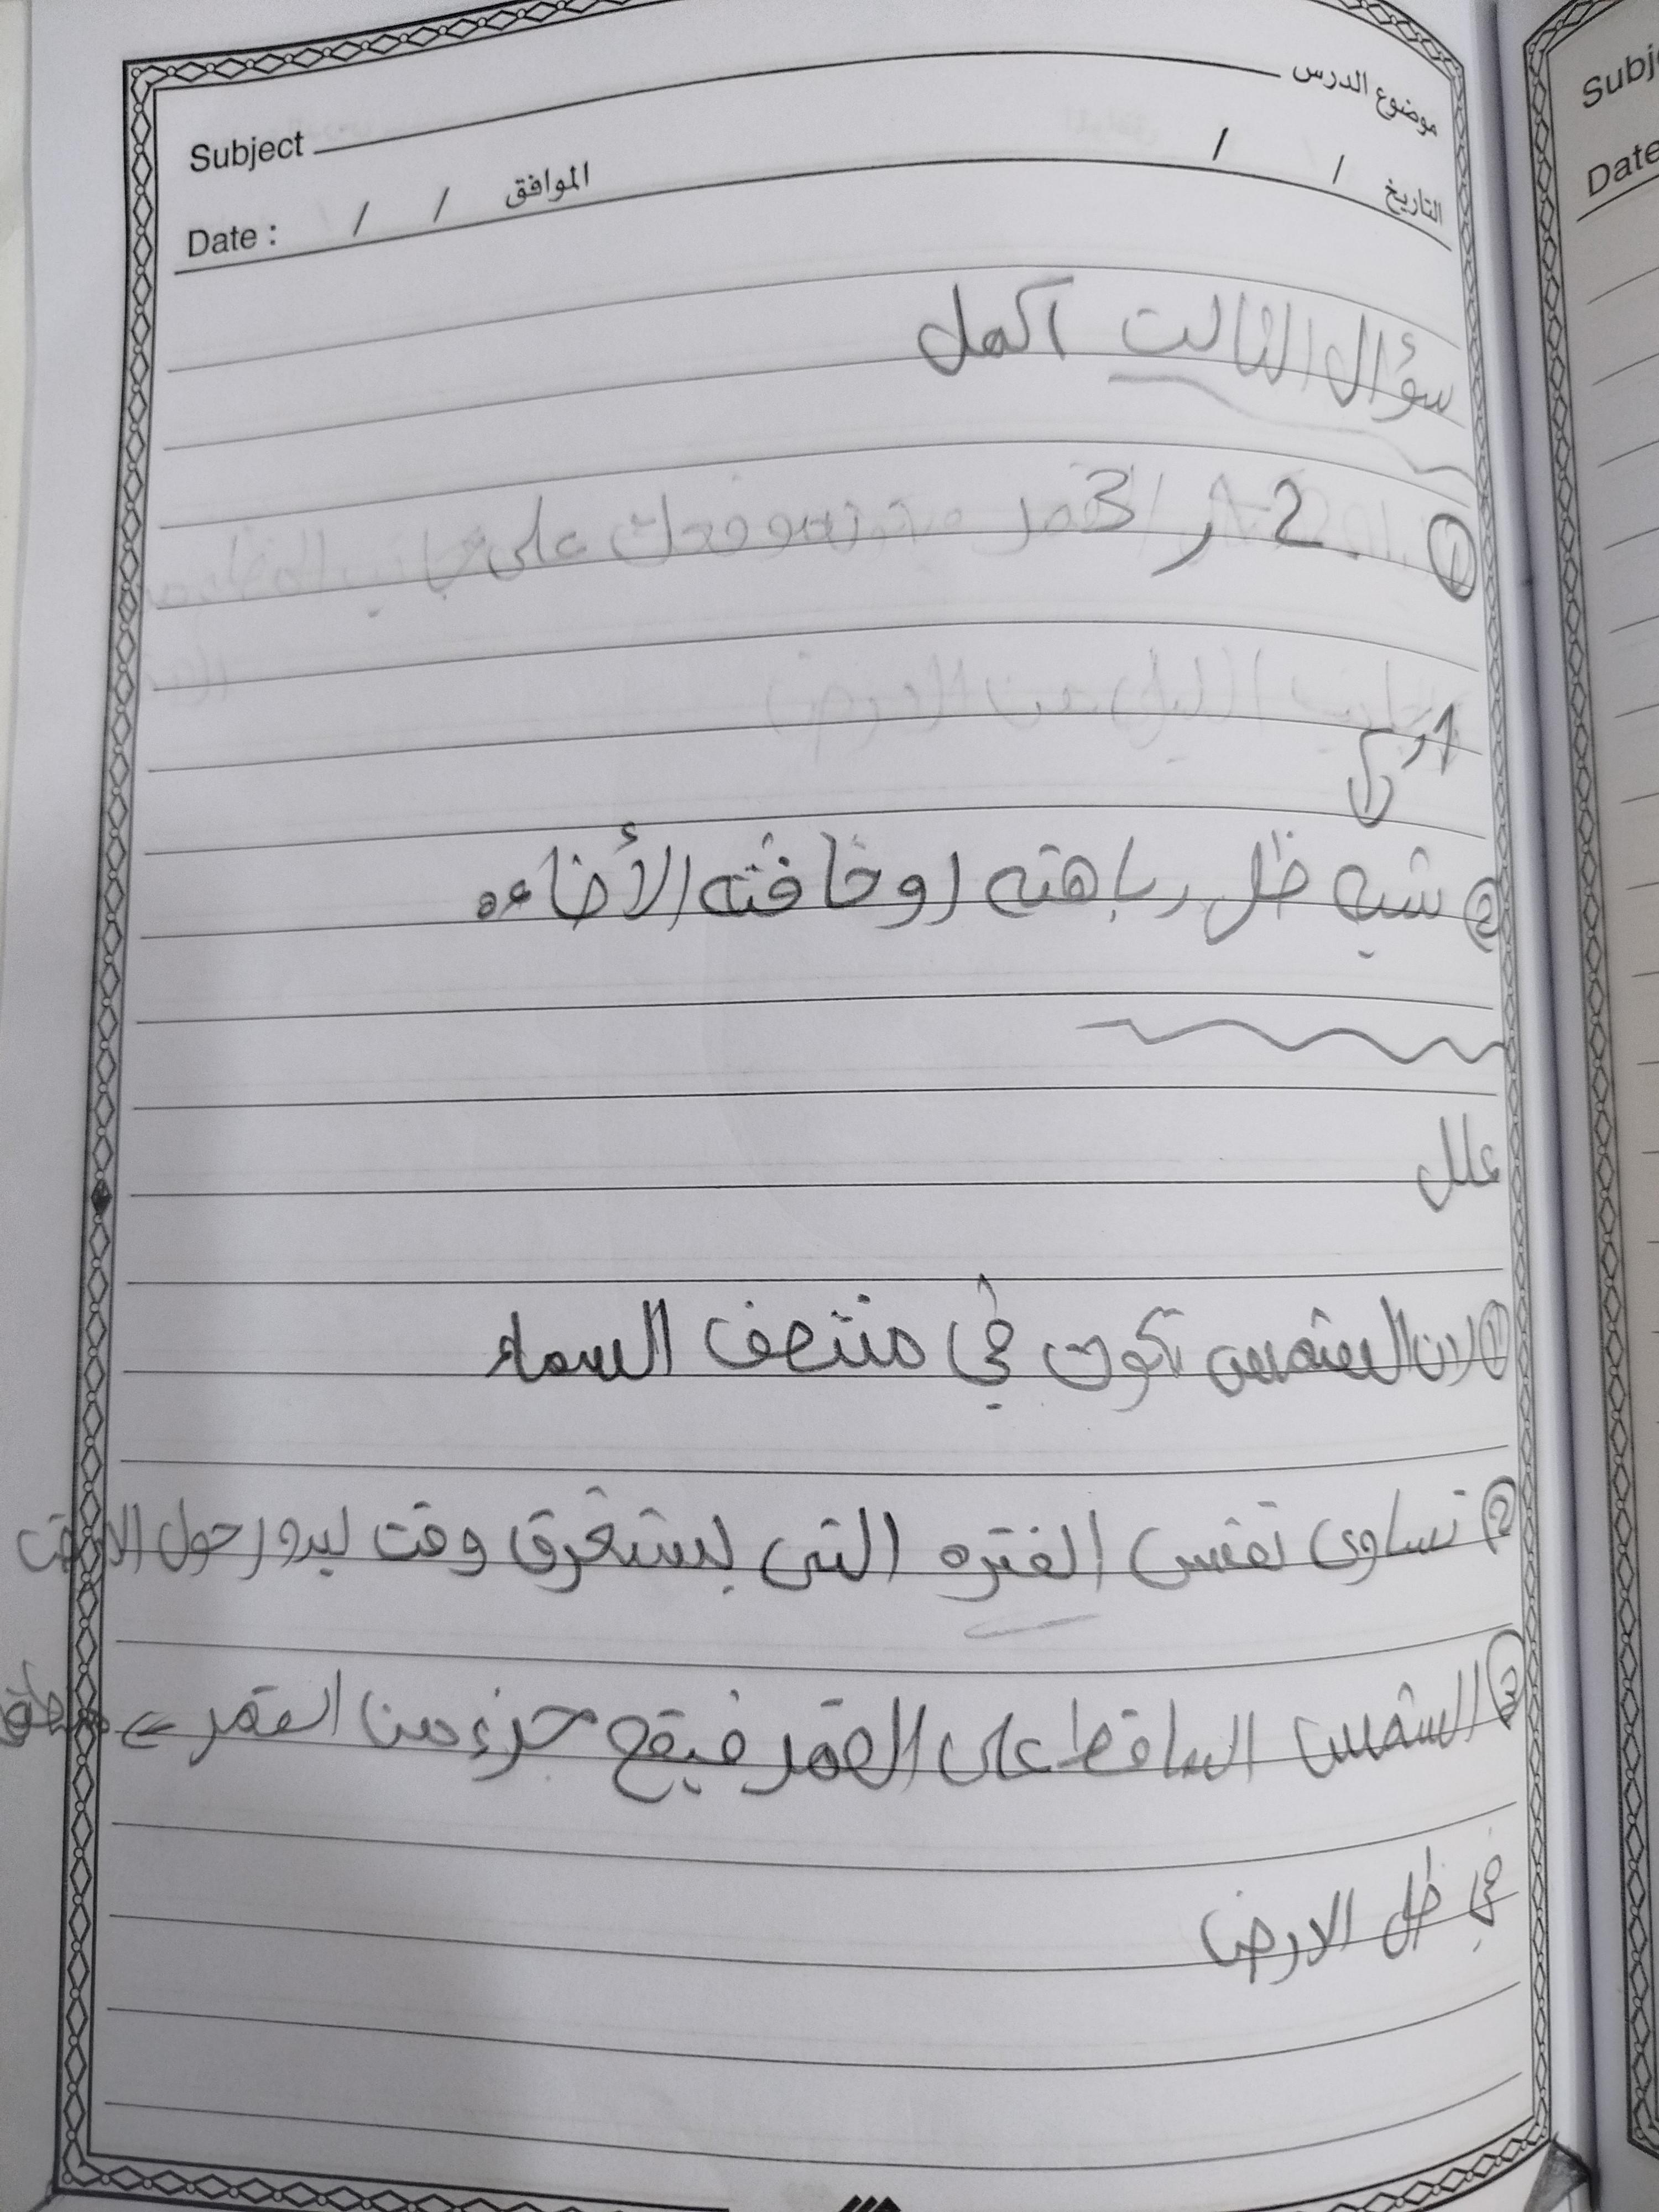 موضوع الدرس
Subject
التاريخ / /
الموافق / /
Date :
Subj
Date
سؤال الثالث اكمل
① 2 ر 3
② شبه ظل رباهته او خافته الأضاءه
علل
① لان الشمس تكون في منتصف السماء
② تساوى نفس الفتره التى يستغرق وقت ليدور حول الارض
③ الشمس الساقط على القمر فيقع جزء من القمر
في ظل الارض